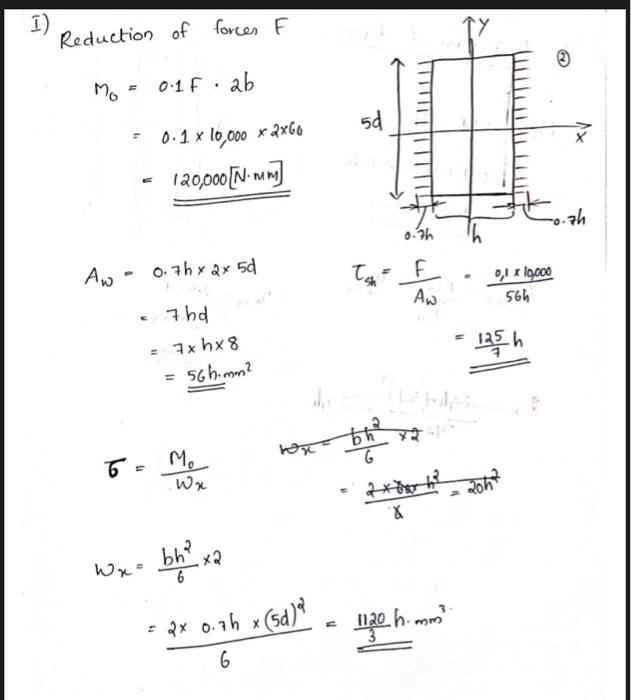 I) Reduction of forces F
M₀ = 0.1 F · 2b
= 0.1 x 10,000 x 2x60
= 120,000 [N·mm]
Y
②
5d
X
0.7h
h
0.7h
A_w = 0.7h x 2x 5d
= 7hd
= 7 x h x 8
= 56h·mm²
τ_sh = F / A_w = 0,1 x 10,000 / 56h
= 125/7 h
σ = M₀ / W_x
W_x = bh²/6 x2
= 20h²
W_x = bh²/6 x2
= 2x 0.7h x (5d)² / 6 = 1120/3 h·mm³